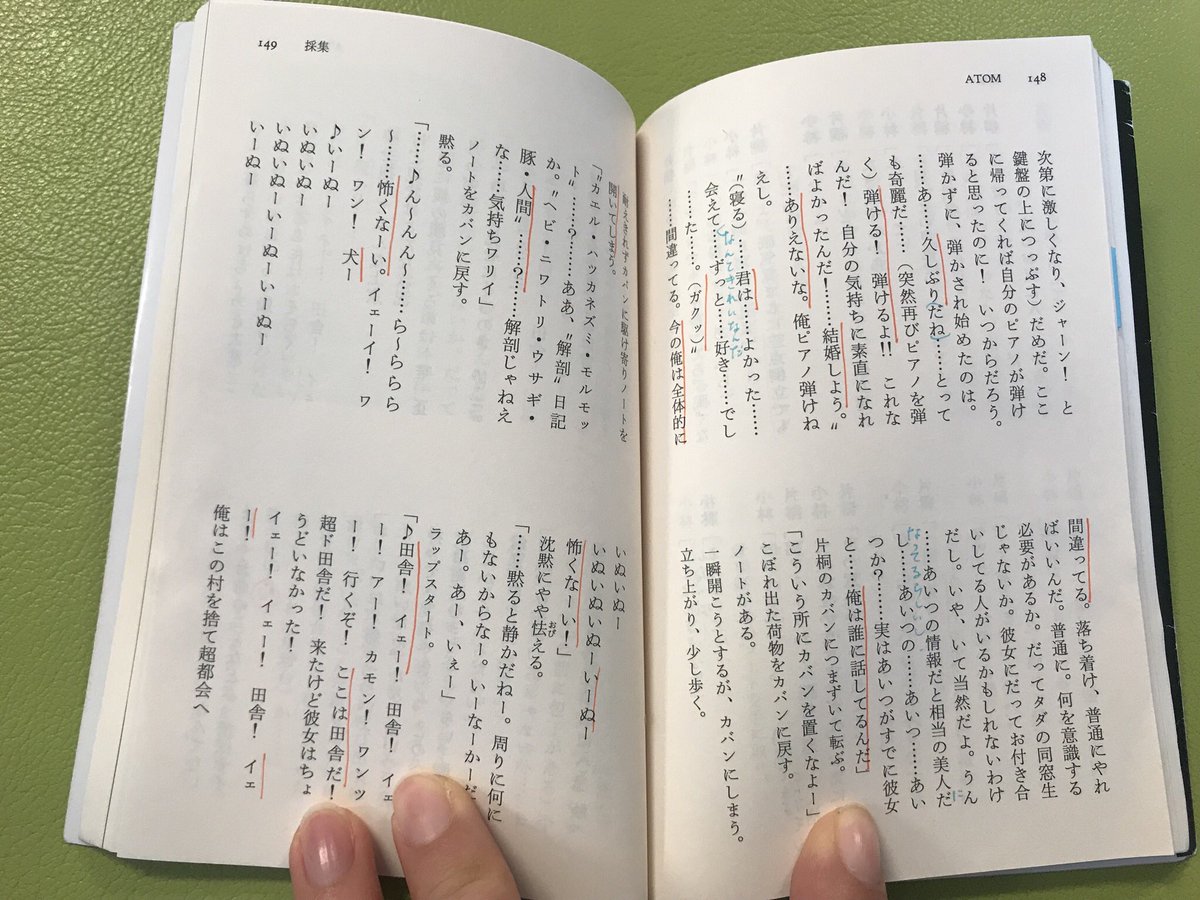 ATOM 148
次第に激しくなり、ジャーン！ と
鍵盤の上につっぷす）だめだ。ここ
に帰ってくれば自分のピアノが弾け
ると思ったのに！ いつからだろう。
弾かずに、弾かされ始めたのは。
……あ……久しぶり（だね）……とって
も奇麗だ……（突然再びピアノを弾
く）弾ける！ 弾けるよ!! これな
んだ！ 自分の気持ちに素直になれ
ばよかったんだ！……結婚しよう。〟
……ありえないな。俺ピアノ弾けね
えし。
〝（寝る）……君は……よかった……
なんてきれいなんだ
会えて（……ずっと……好き……でし
た……。（ガクッ）〟
……間違ってる。今の俺は全体的に
間違ってる。落ち着け、普通にやれ
ばいいんだ。普通に。何を意識する
必要があるか。だってタダの同窓生
じゃないか。彼女にだってお付き合
いしてる人がいるかもしれないわけ
だし。いや、いて当然だよ。うん
に
……あいつの情報だと相当の美人だ
なえてるらしいし
し……あいつの……あいつ……あい
つか？……実はあいつがすでに彼女
と……俺は誰に話してるんだ」
片桐のカバンにつまずいて転ぶ。
「こういう所にカバンを置くなよー」
こぼれ出た荷物をカバンに戻す。
ノートがある。
一瞬開こうとするが、カバンにしまう。
立ち上がり、少し歩く。
149 採集
耐えきれずカバンに駆け寄りノートを
開いてしまう。
「〝カエル・ハツカネズミ・モルモッ
ト〟……？……ああ、〝解剖〟日記
か。〝ヘビ・ニワトリ・ウサギ・
豚・人間〟……？……解剖じゃねえ
な……気持ちワリィ」
ノートをカバンに戻す。
黙る。
「……♪ん～んん～……ら～らららら
～……怖くなーい。イェーイ！ ワ
ン！ ワン！ 犬ー
♪いーぬー
いぬいぬー
いぬいぬーいーぬーいーぬー
いーぬー
いぬいぬー
いぬいぬいぬーいーぬー
怖くなーい！」
沈黙にやや怯える。
おび
「……黙ると静かだねー。周りに何に
もないからなー。いーなーかーだ
あー。あー、いぇー」
ラップスタート。
「♪田舎！ イェー！ 田舎！ イェ
ー！ アー！ カモン！ ワンッ
ー！ 行くぞ！ ここは田舎だ！
超ド田舎だ！ 来たけど彼女はちょ
うどいなかった！
イェー！ イェー！ 田舎！ イェ
ー！
俺はこの村を捨て超都会へ